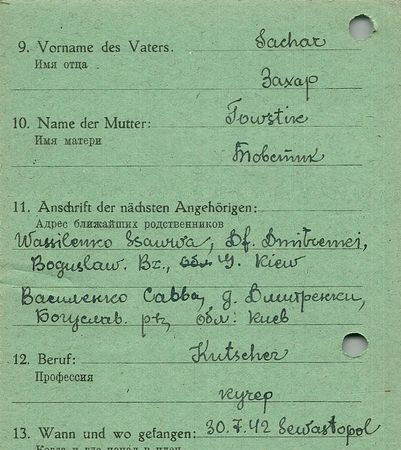 9. Vorname des Vaters. Sachar
Имя отца
Захар
10. Name der Mutter: Towstik
Имя матери
Товстик
11. Anschrift der nächsten Angehörigen:
Адрес ближайших родственников
Wassilenko Ssawwa, Df. Dmitrenki,
Boguslaw. Bz., G. Kiew
Василенко Савва, д. Дмитренки,
Богуслав. р-н, обл: Киев
12. Beruf: Kutscher
Профессия
кучер
13. Wann und wo gefangen: 30.7.42 Sewastopol